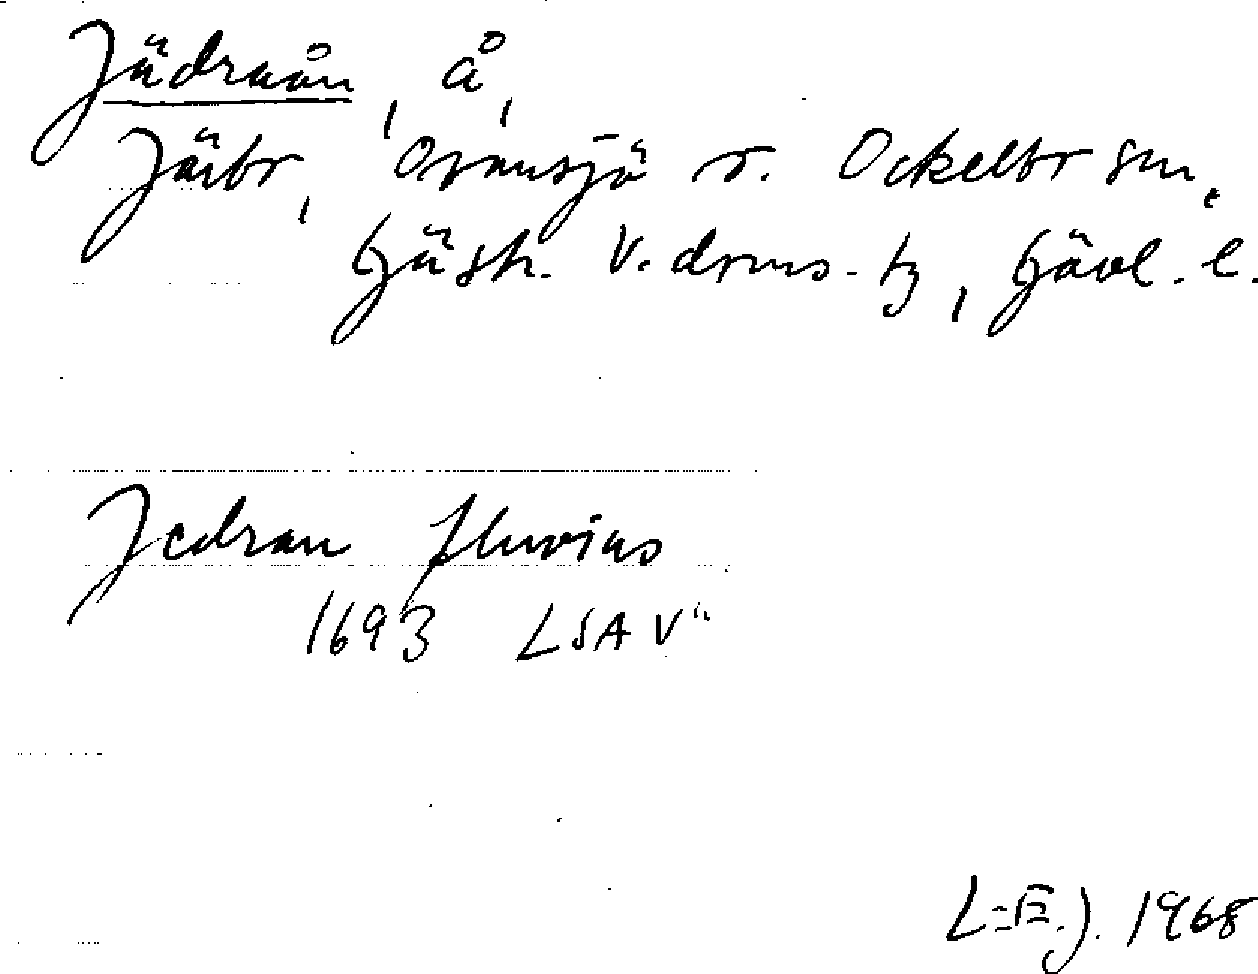 Jädraån, å,
Järbo, Ovansjö o. Ockelbo sn,
Gästr. V. doms. tg, Gävl. l.
Jedran fluvius
1693 LSA V"
L-E.J. 1968